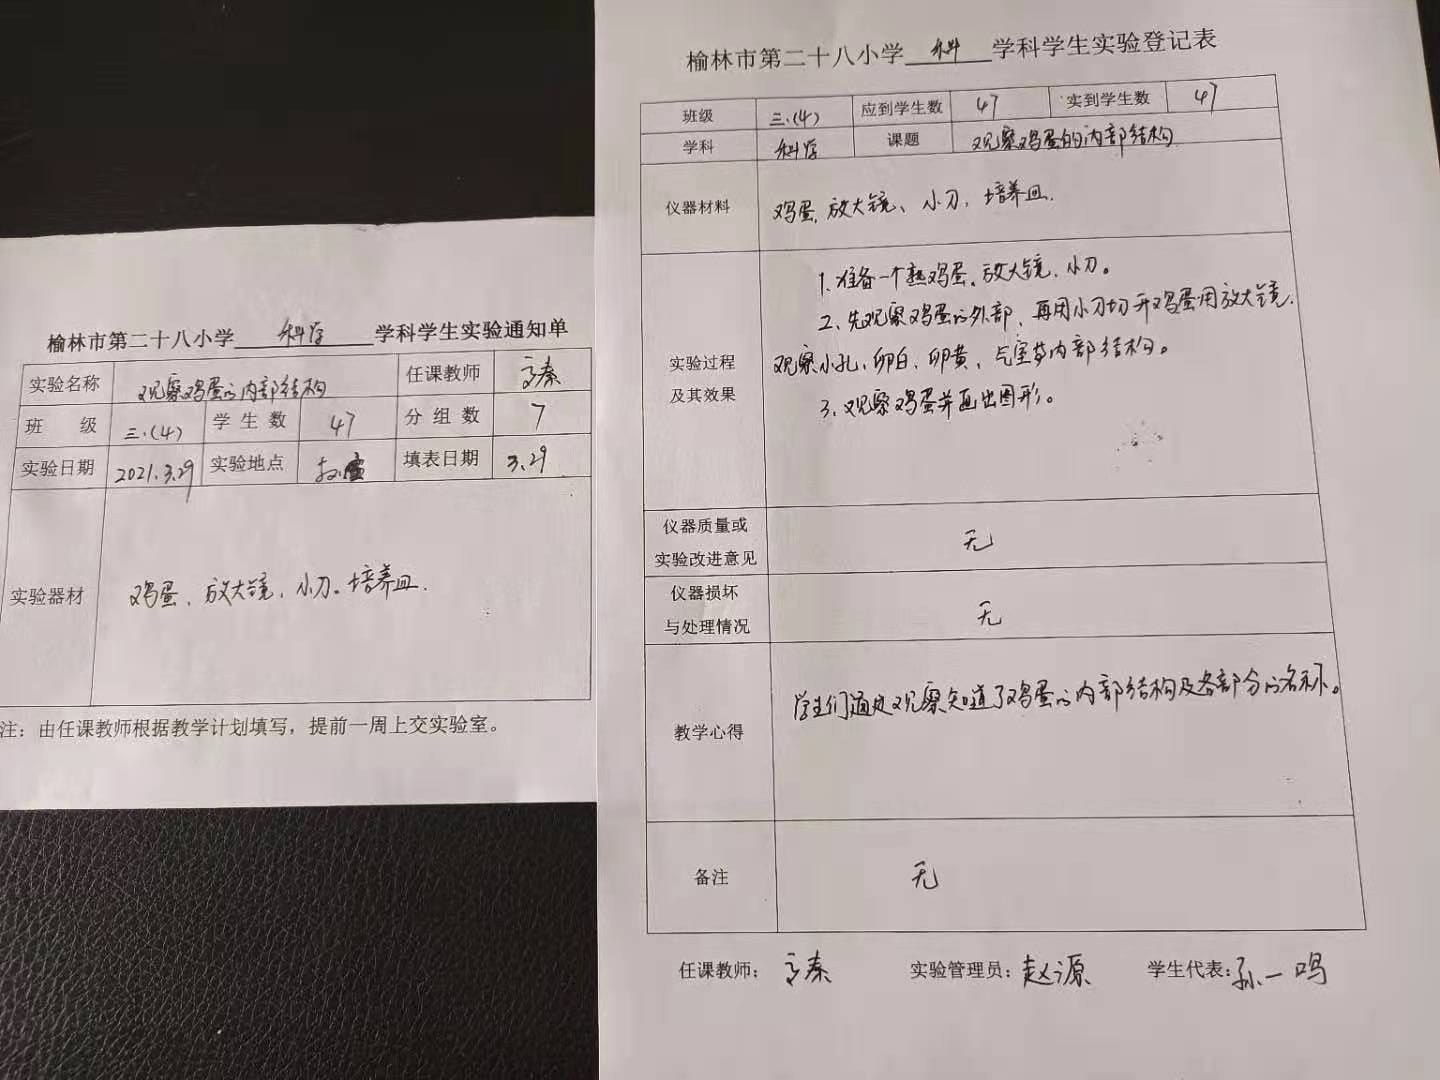 榆林市第二十八小学 科学 学科学生实验通知单
实验名称 观察鸡蛋的内部结构 任课教师 秦
班 级 三.(4) 学生数 47 分组数 7
实验日期 2021.3.29 实验地点 填表日期 3.29
实验器材 鸡蛋、放大镜、小刀、培养皿.
注:由任课教师根据教学计划填写,提前一周上交实验室。
榆林市第二十八小学 科 学科学生实验登记表
班级 三.(4) 应到学生数 47 实到学生数 47
学科 科学 课题 观察鸡蛋的内部结构
仪器材料 鸡蛋、放大镜、小刀、培养皿.
实验过程
及其效果
1.准备一个熟鸡蛋、放大镜、小刀。
2、先观察鸡蛋的外部,再用小刀切开鸡蛋用放大镜
观察小孔、卵白、卵黄、气室等内部结构。
3、观察鸡蛋并画出图形。
仪器质量或
实验改进意见 无
仪器损坏
与处理情况 无
教学心得 学生们通过观察知道了鸡蛋的内部结构及各部分的名称。
备注 无
任课教师: 秦 实验管理员:赵源 学生代表:孙一鸣